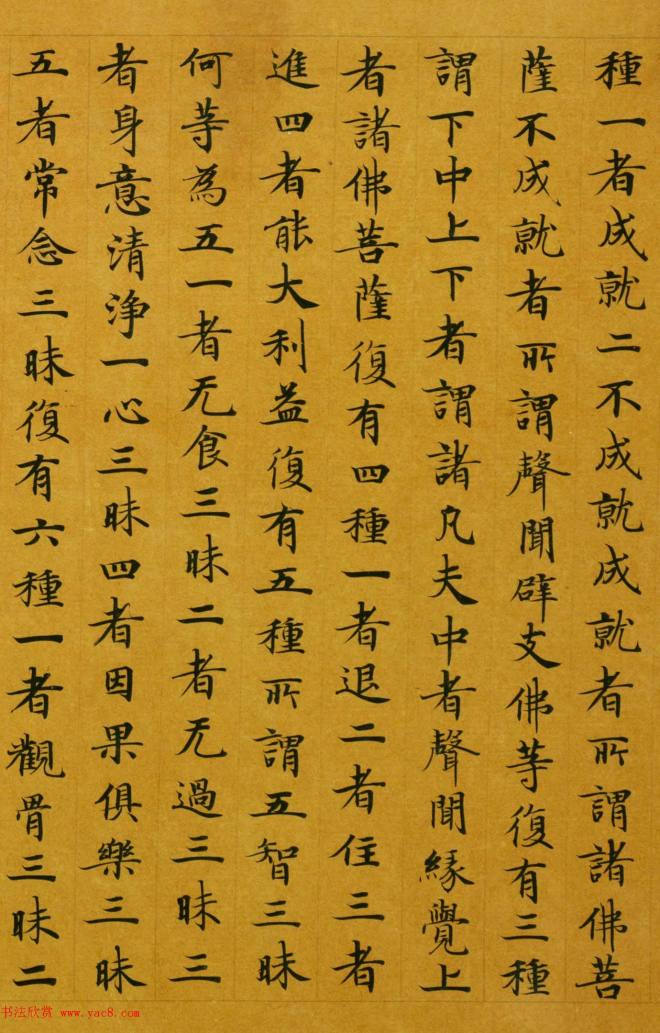 種一者成就二不成就成就者所謂諸佛菩
薩不成就者所謂聲聞辟支佛等復有三種
謂下中上下者謂諸凡夫中者聲聞緣覺上
者諸佛菩薩復有四種一者退二者住三者
進四者能大利益復有五種所謂五智三昧
何等為五一者无食三昧二者无過三昧三
者身意清淨一心三昧四者因果俱樂三昧
五者常念三昧復有六種一者觀骨三昧二
书法欣赏 www.yac8.com